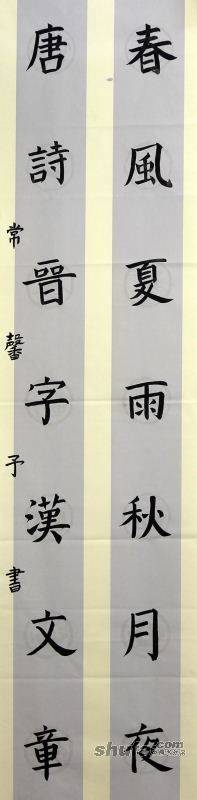 春風夏雨秋月夜
唐詩晉字漢文章
常馨予書